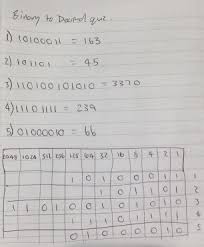 Binary to Decimal quiz.
1) 10100011 = 163
2) 101101 = 45
3) 110100101010 = 3370
4) 11101111 = 239
5) 01000010 = 66
2048 1024 512 256 128 64 32 16 8 4 2 1
1 0 1 0 0 0 1 1 1
1 0 1 1 0 1 2
1 1 0 1 0 0 1 0 1 0 1 0 3
1 1 1 0 1 1 1 1 4
0 1 0 0 0 0 1 0 5